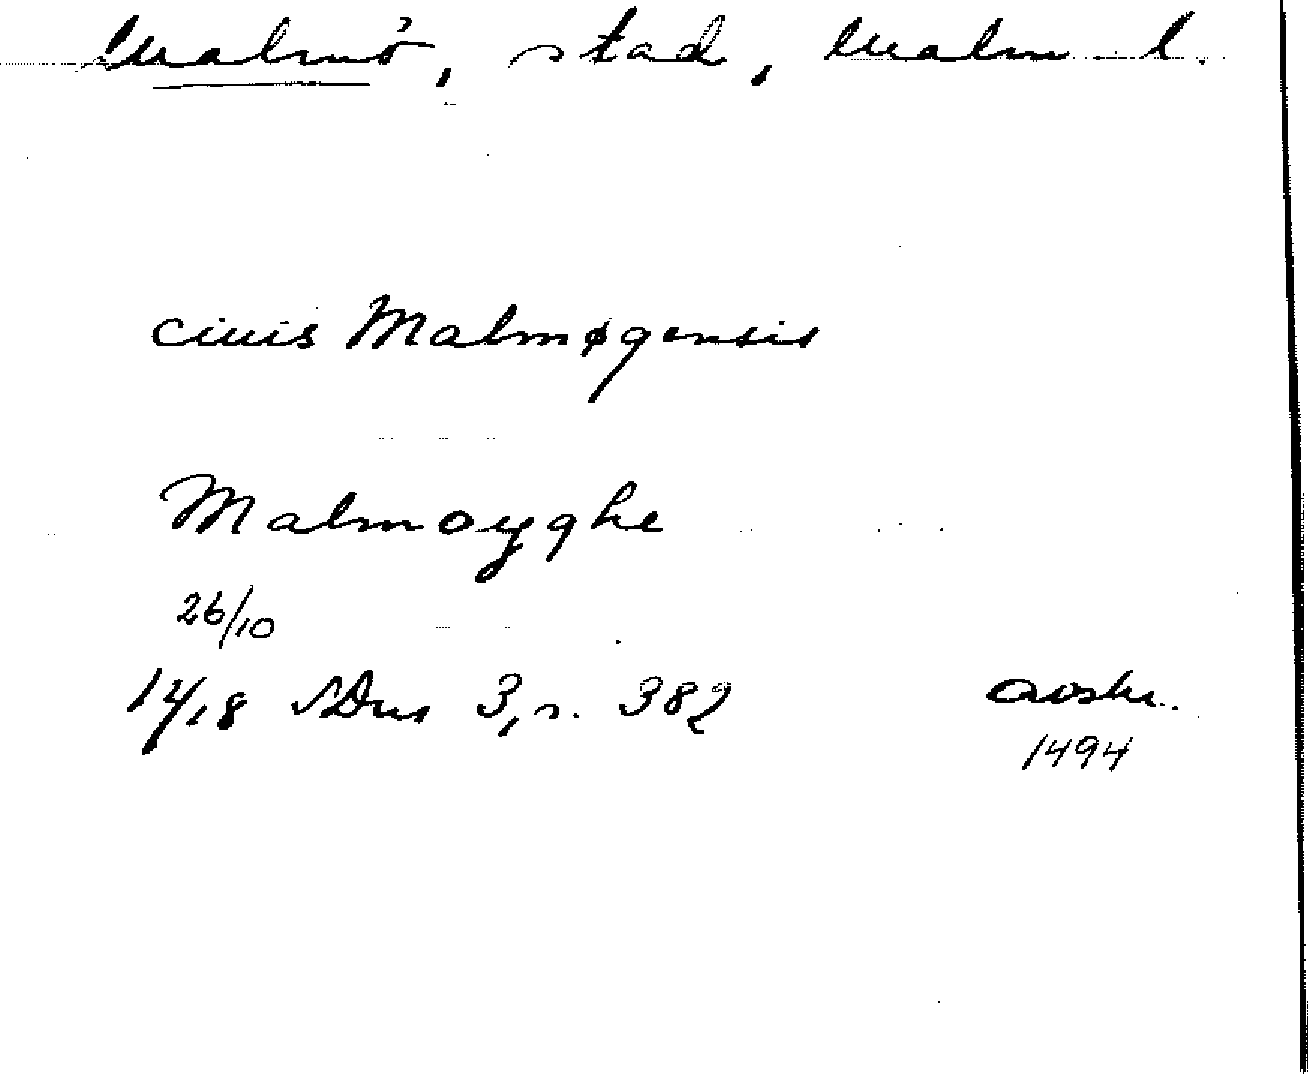 Malmö, stad, Malm l.
ciuis Malmøgensis
Malmoyghe
26/10
1418 SDns 3, s. 382 avskr.
1494